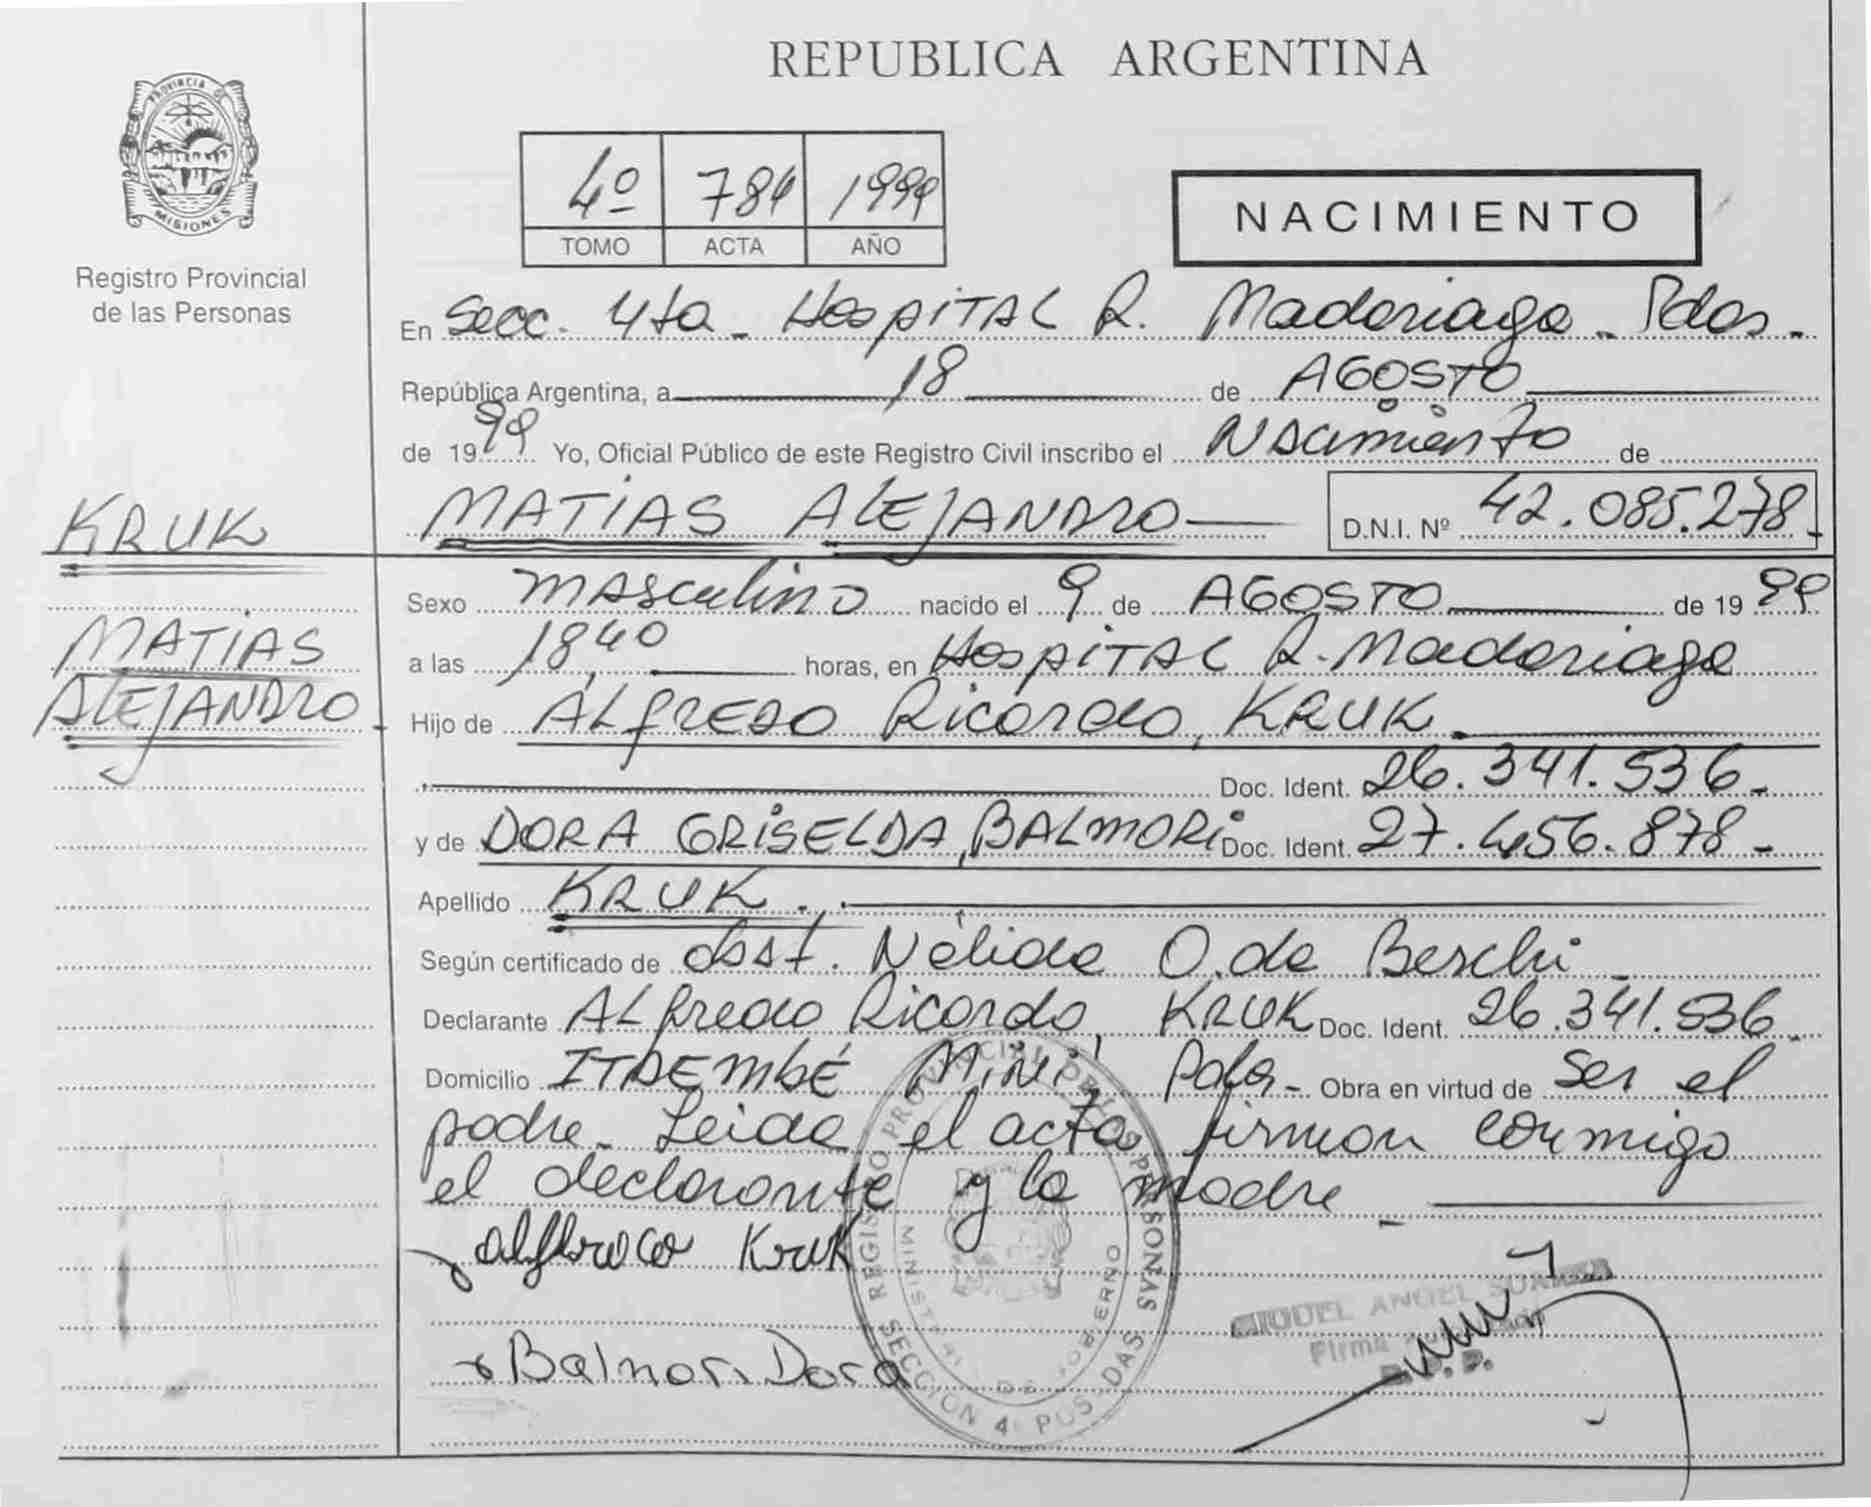 REPUBLICA ARGENTINA
PROVINCIA DE
MISIONES
Registro Provincial
de las Personas
4º 784 1999
TOMO ACTA AÑO
NACIMIENTO
En Secc. 4ta - Hospital R. Madariaga - Pdas -
República Argentina, a 18 de AGOSTO
de 1999 Yo, Oficial Público de este Registro Civil inscribo el Nacimiento de
MATIAS ALEJANDRO D.N.I. Nº 42.085.278 -
KRUK
MATIAS
ALEJANDRO -
Sexo masculino nacido el 9 de AGOSTO de 1999
a las 18,40 horas, en Hospital R. Madariaga
Hijo de ALFREDO Ricardo, KRUK
Doc. Ident. 26.341.536 -
y de DORA GRISELDA, BALMORI Doc. Ident. 27.456.878 -
Apellido KRUK
Según certificado de obst. Nélida O. de Beschi -
Declarante Alfredo Ricardo, KRUK Doc. Ident. 26.341.536 -
Domicilio ITAEMBÉ MiNi, Pdas - Obra en virtud de ser el
padre - Leida el acta, firman conmigo
el declarante y la madre -
Kruk
Balmori Dora
REGISTRO PROVINCIAL DE LAS PERSONAS
SECCION 4 POSADAS
MINISTERIO DE GOBIERNO
MIGUEL ANGEL
Firma